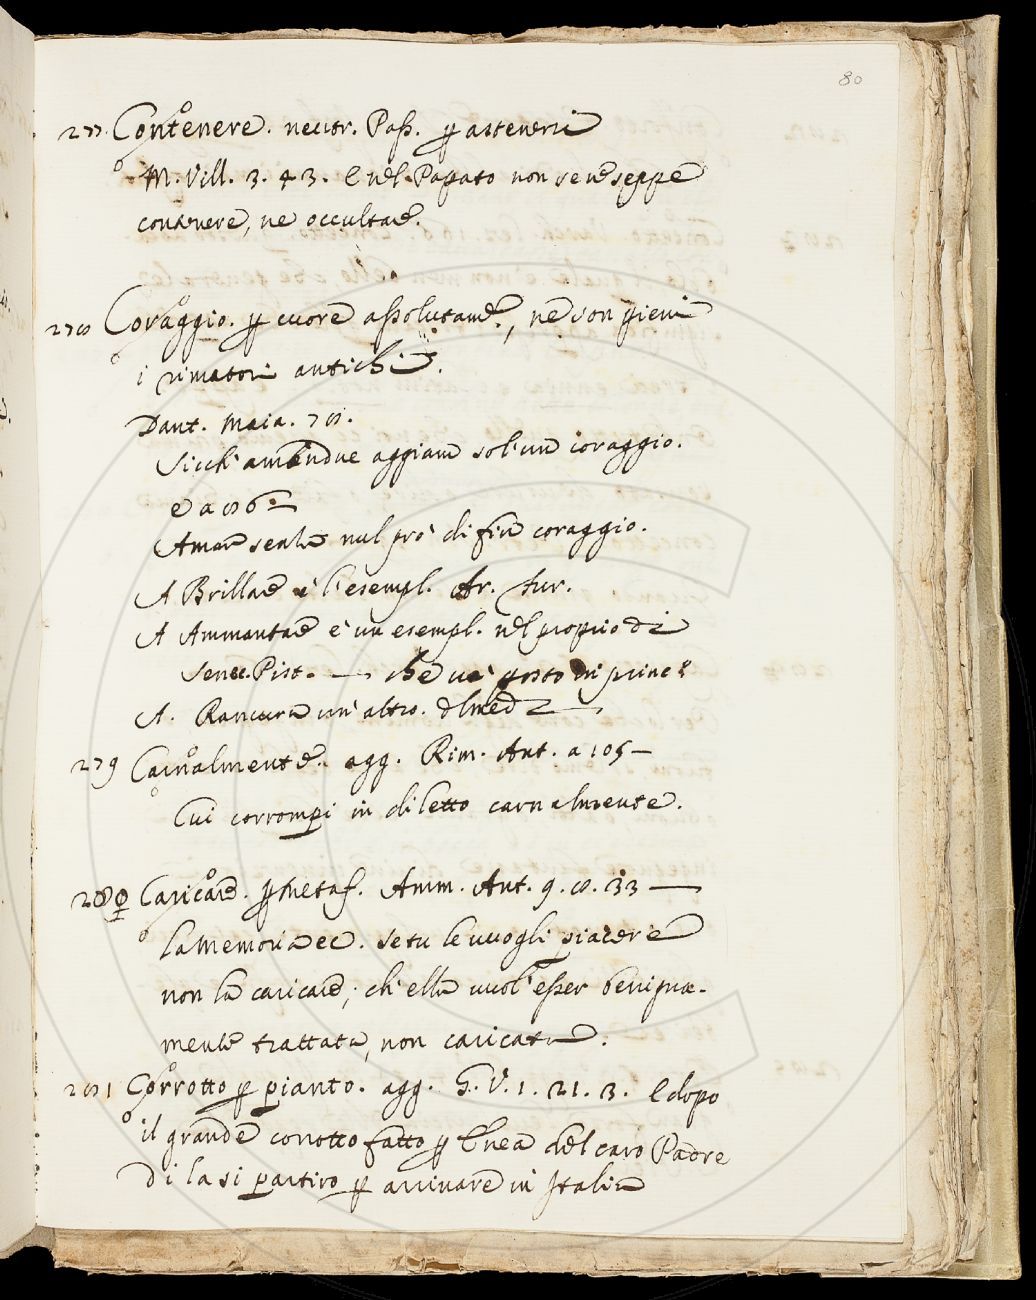 80
277. Contenere. neutr. Pass. p astenersi
M. Vill. 3. 43. E nel Papato non se ne seppe
contenere, ne occultare.
278 Coraggio. p cuore assolutamte., ne son pieni
i rimatori antichi.
Dant. Maia. 78.
Sicch' amendue aggiam sol' un coraggio.
e a 86.
Amar senza nul prò di fin coraggio.
A Brillare è l'esempl. Ar. Fur.
A Ammantare è un esempl. nel proprio di
Senec. Pist. — che va posto in princ.
A. Rancura un' altro.
279 Carnalmente. agg. Rim. Ant. a 105 —
Cui corrompi in diletto carnalmente.
280 Caricare. p metaf. Amm. Ant. 9. 8. 33 —
la memoria ec. se tu le vuogli piacere
non la caricare; ch' ella vuol' esser benigna-
mente trattata, non caricata.
281 Corrotto p pianto. agg. G. V. 1. 21. 3. E dopo
il grande corrotto fatto p Enea del caro Padre
di là si partiro p arrivare in Italia